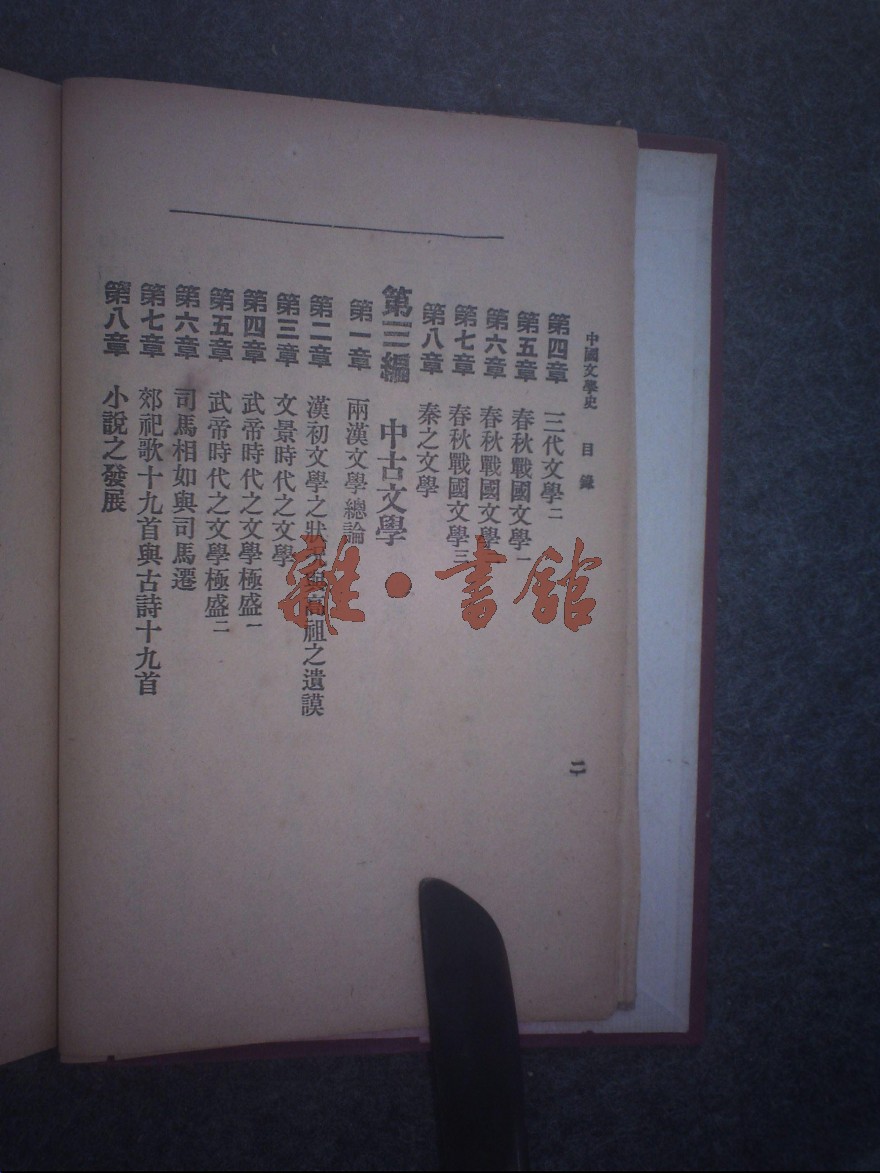 中國文學史 目錄 二
第四章 三代文學二
第五章 春秋戰國文學一
第六章 春秋戰國文學二
第七章 春秋戰國文學三
第八章 秦之文學
第三編 中古文學
第一章 兩漢文學總論
第二章 漢初文學之狀況與高祖之遺謨
第三章 文景時代之文學
第四章 武帝時代之文學極盛一
第五章 武帝時代之文學極盛二
第六章 司馬相如與司馬遷
第七章 郊祀歌十九首與古詩十九首
第八章 小說之發展
雜·書館